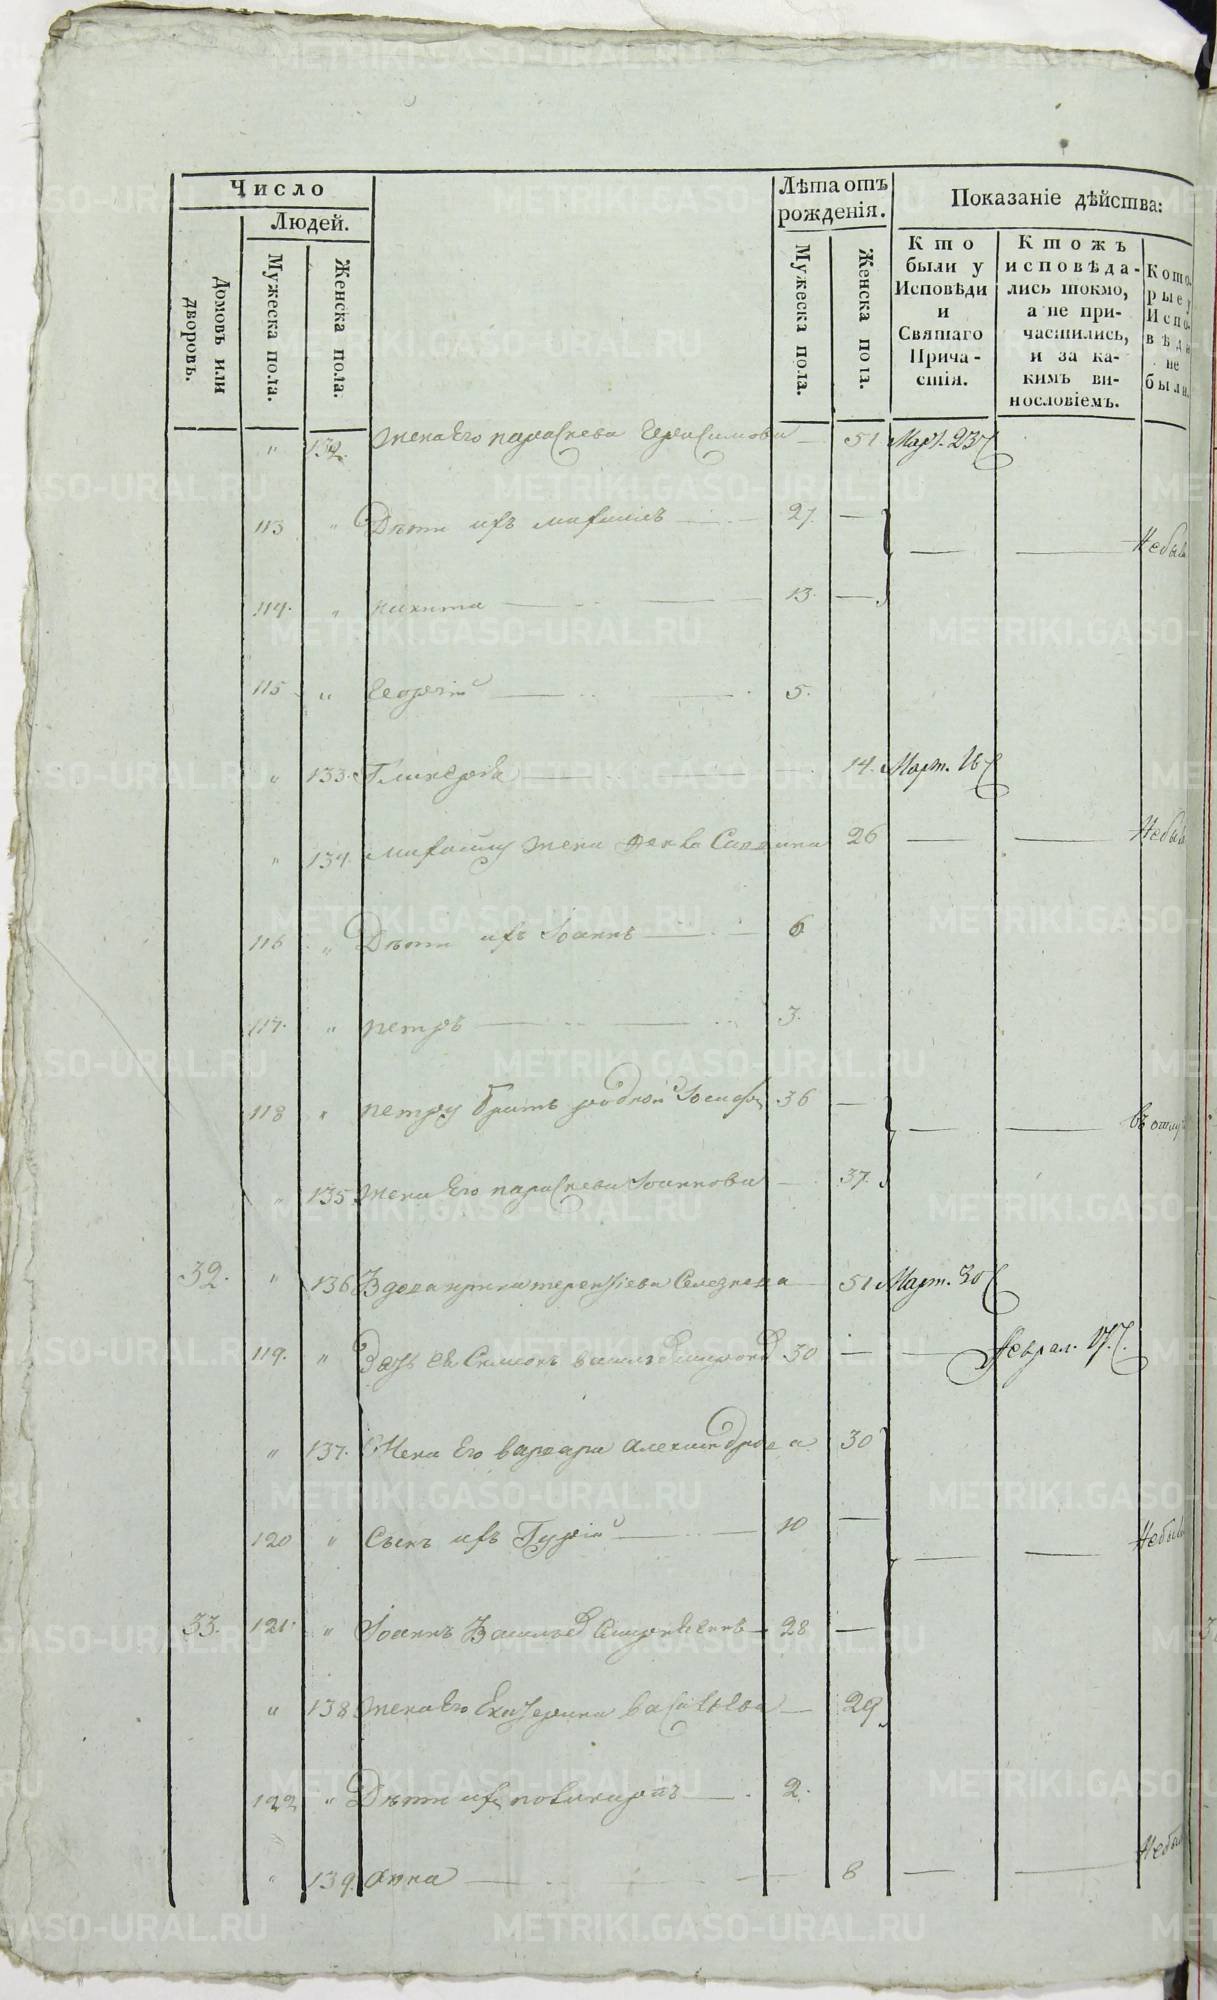 Число
Людей.
Домовъ или дворовъ.
Мужеска пола.
Женска пола.
Лѣта отъ рождения.
Мужеска пола.
Женска пола.
Показаніе дѣйства:
Кто были у Исповѣди и Святаго Причастія.
Ктожъ исповѣдались токмо, а не причастились, и за какимъ винословіемъ.
Которые у Исповѣди не были.
" 132. жена Его параскева Герасимова — 51 Март. 23
113 " Дѣти ихъ михаилъ — 27. — Небыл
114. " никита — 13. —
115 " Георгій — 5.
" 133. Гликерия — 14. Март. 16
" 134. михаилу жена Саввина 26 — — Небыл
116 " Дѣти ихъ Іоаннъ — 6
117. " петръ — 3.
118 " петру братъ родной Іосифъ 36 — — — въ отлу
" 135 жена Его параскева Іоаннова — 37.
32. " 136 Вдова терентіева Селезнева — 51 Март. 30
119. " Зять Ея Симеонъ 30 — — Феврал. 17.
" 137. Жена Его варвара александрова 30
120 " Сынъ ихъ Гурій — 10 — — — Небыл
33. 121. " Іоаннъ Васильевъ — 28 —
" 138 жена Его Екатерина васильева — 29
122 " Дѣти ихъ поликарпъ — 2.
" 139. анна — 8 — — Небыл
METRIKI.GASO-URAL.RU